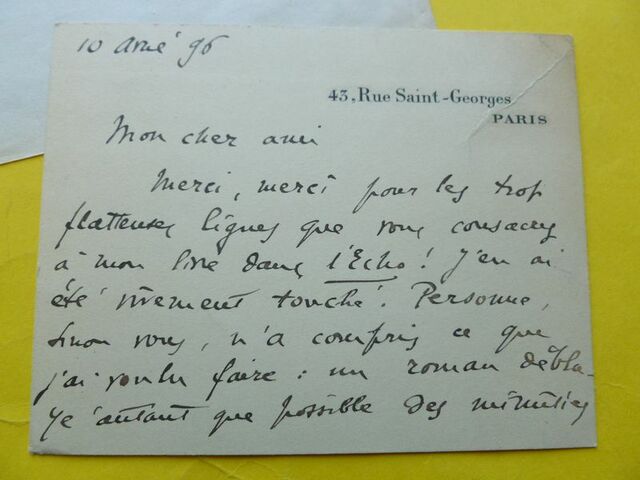 10 Avril 96
43, Rue Saint-Georges
PARIS
Mon cher ami
Merci, merci pour les trop
flatteuses lignes que vous consacrez
à mon livre dans l'Echo! J'en ai
été vivement touché. Personne,
sinon vous, n'a compris ce que
j'ai voulu faire : un roman débla-
yé autant que possible des minuties